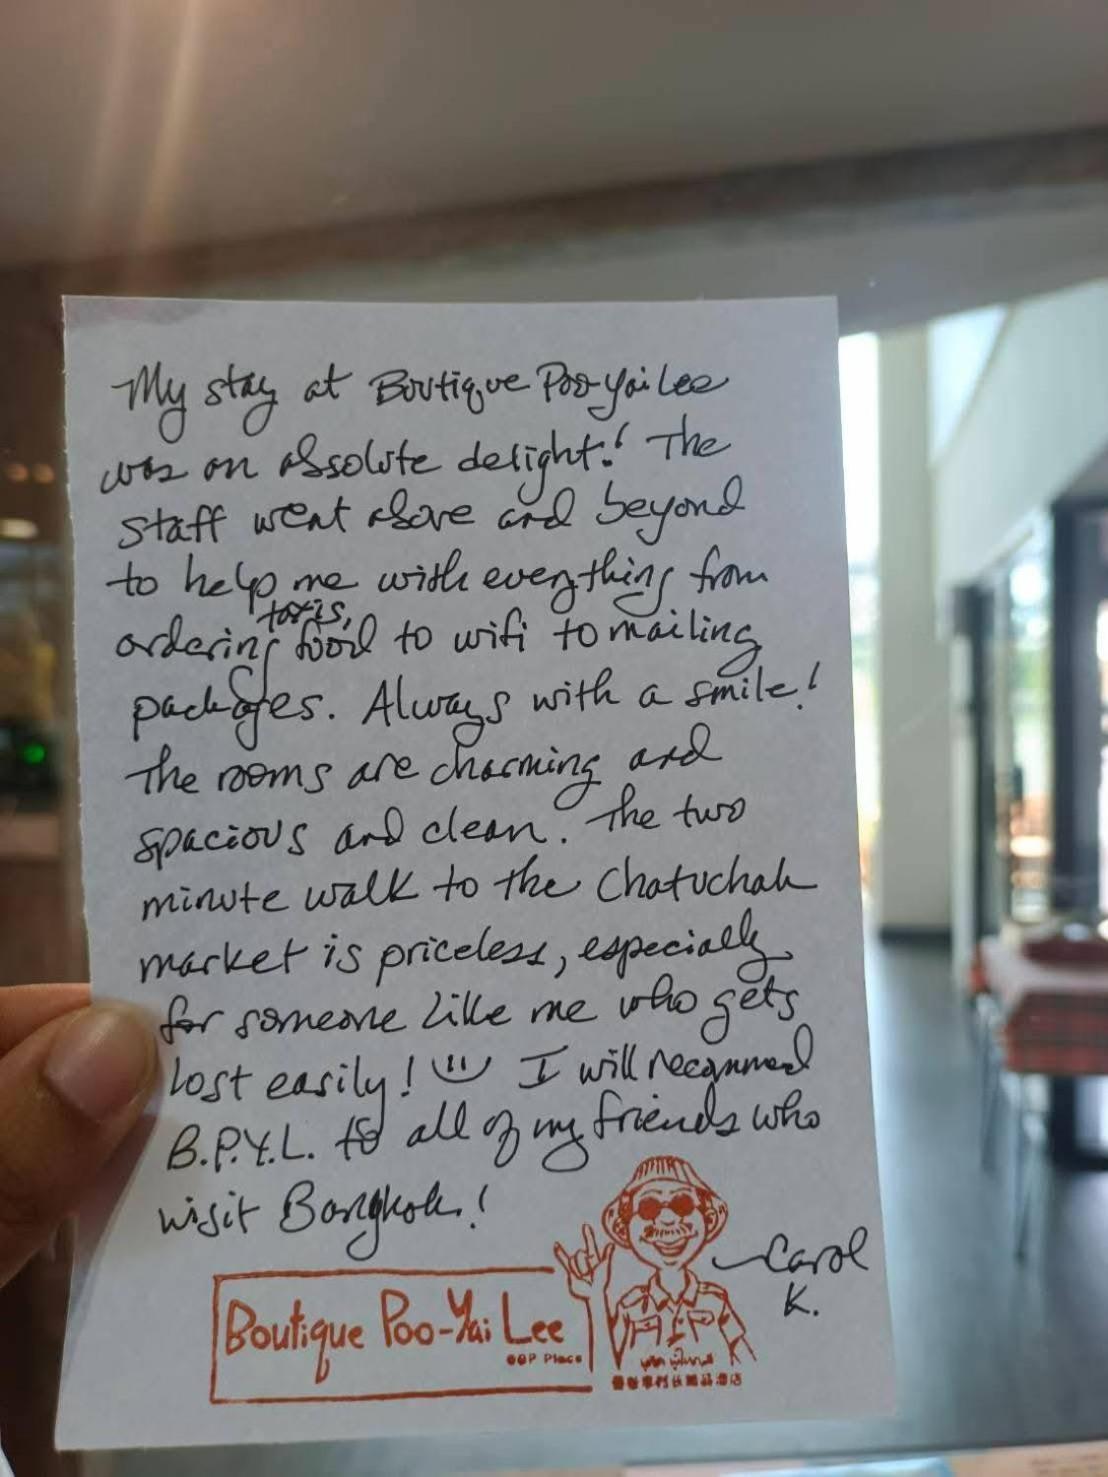 My stay at Boutique Poo-Yai Lee
was an absolute delight! The
staff went above and beyond
to help me with everything from
taxis,
ordering food to wifi to mailing
packages. Always with a smile!
The rooms are charming and
spacious and clean. The two
minute walk to the Chatuchak
market is priceless, especially
for someone like me who gets
lost easily! I will recommend
B.P.Y.L. to all of my friends who
visit Bangkok!
Carol
K.
Boutique Poo-Yai Lee
OOP Place